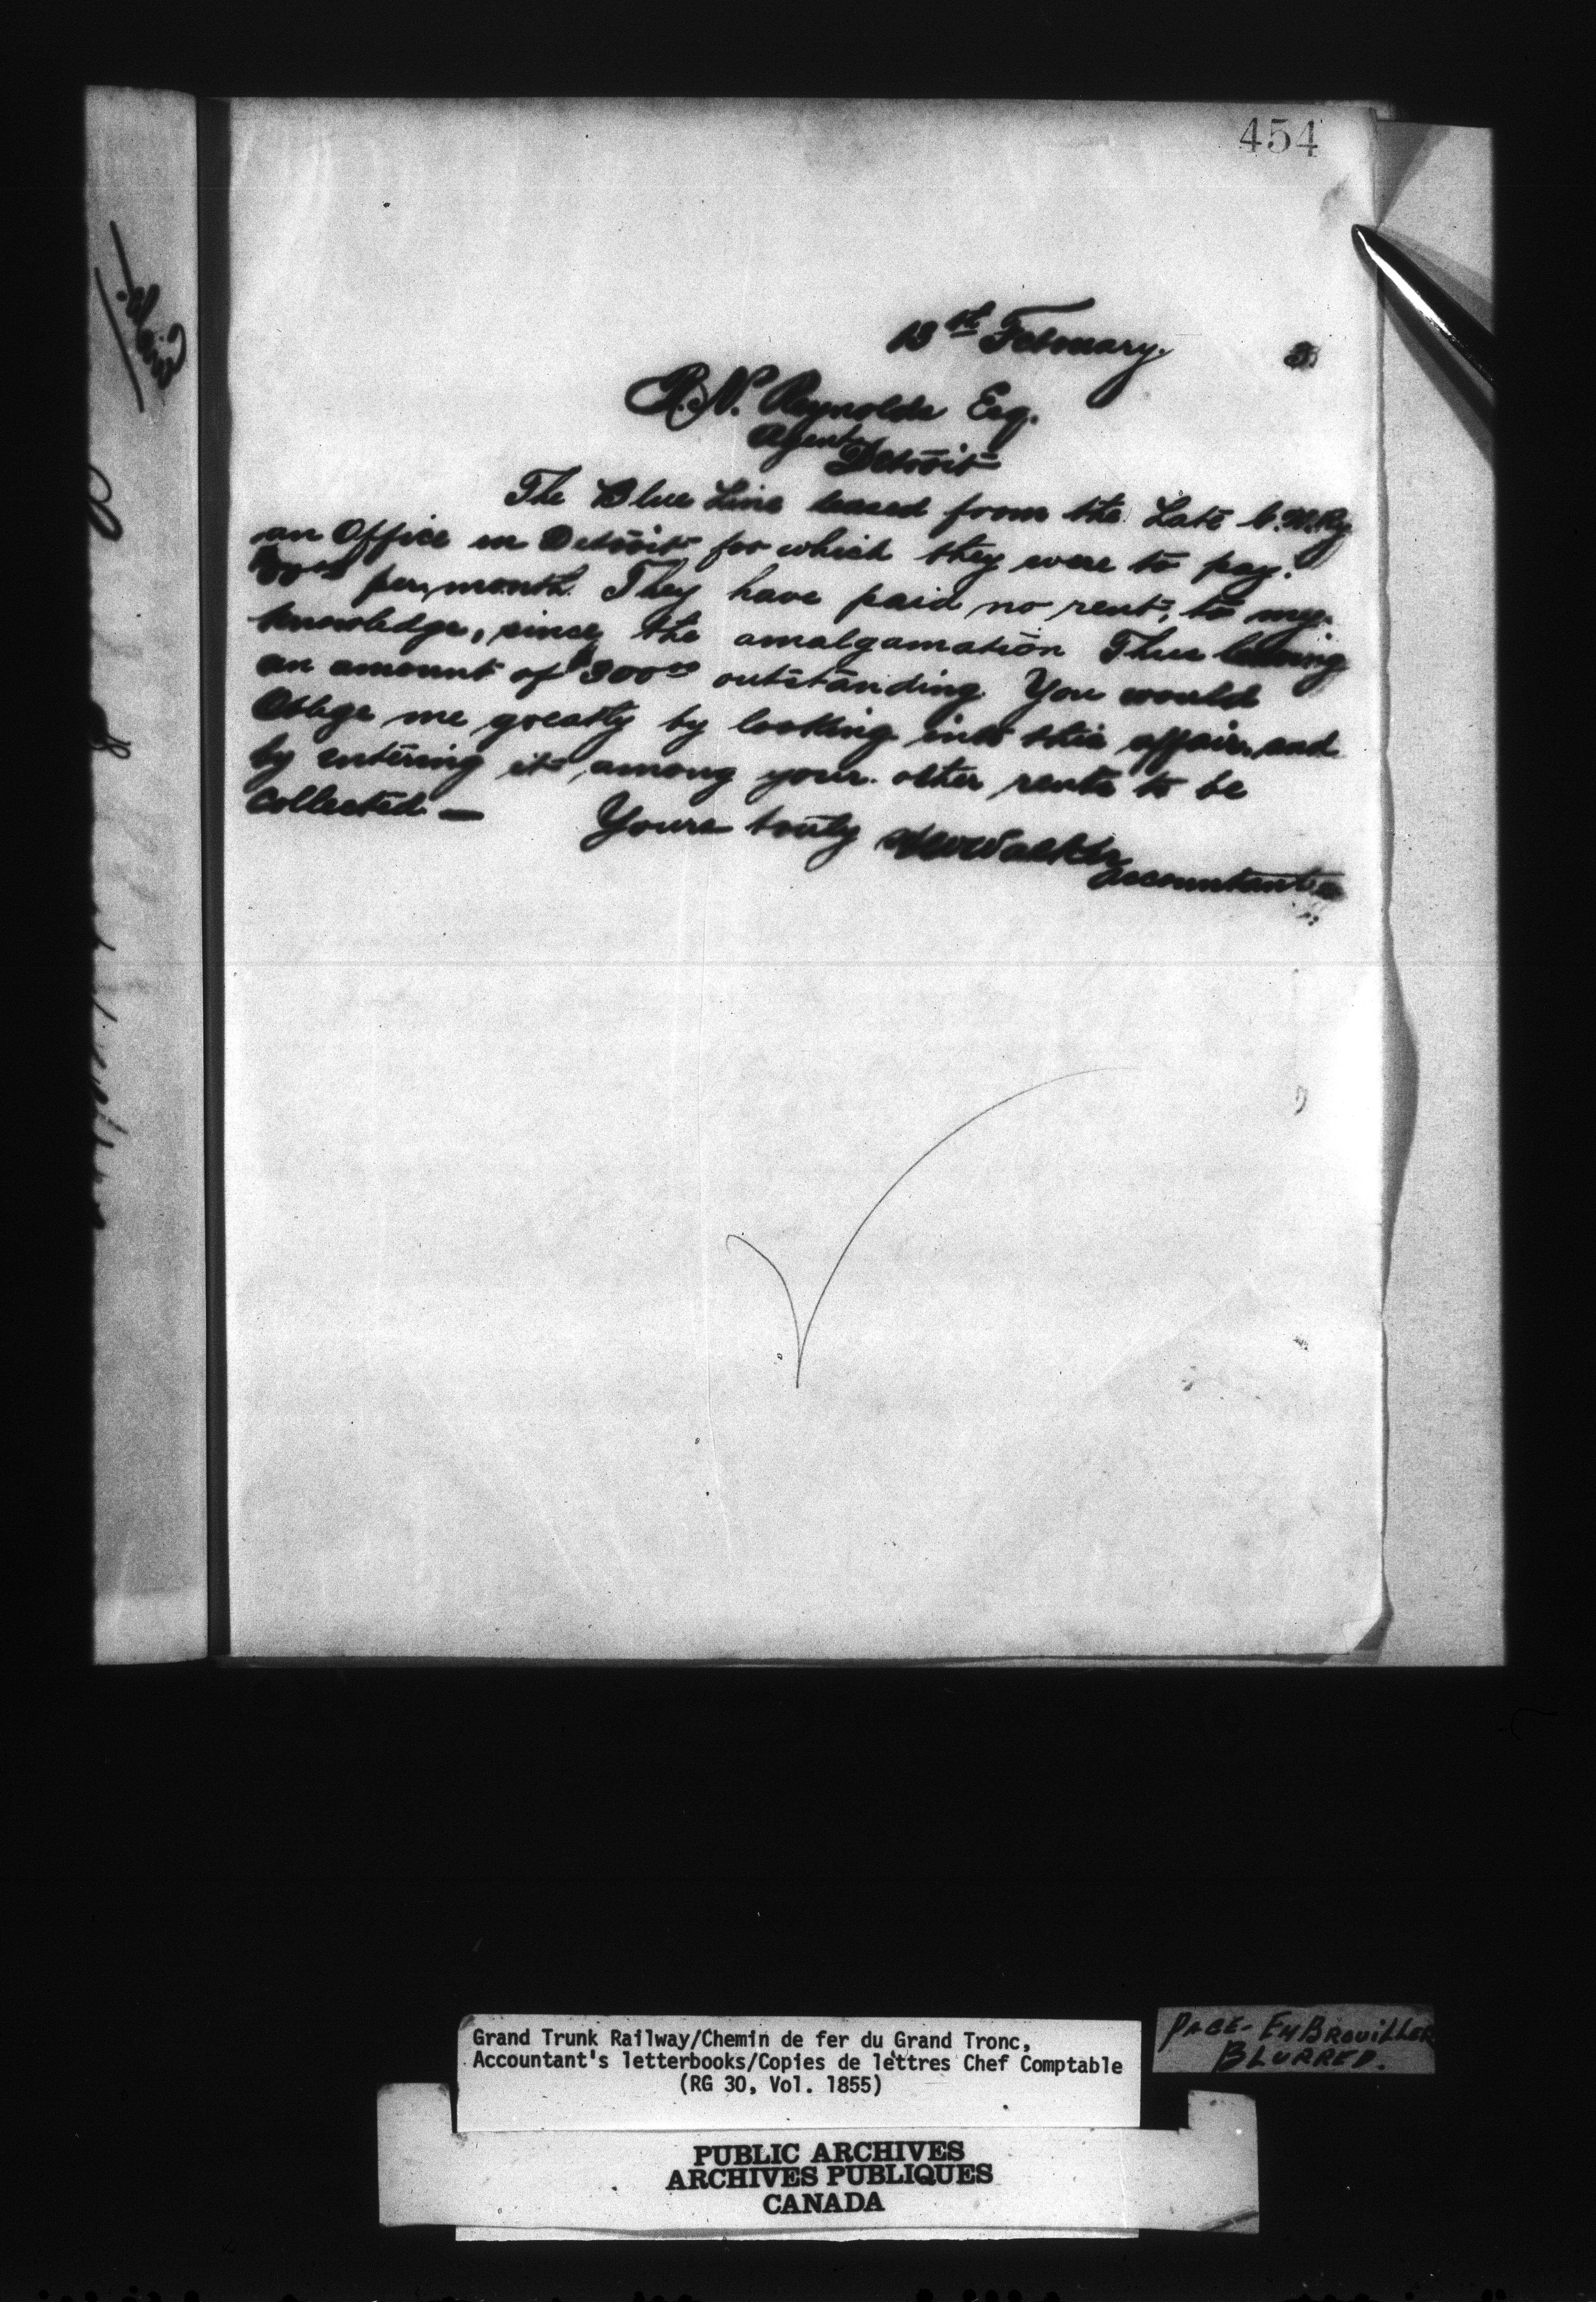 454
13th February.
R. N. Reynolds Esq.
Agent
Detroit
The Blue Line leased from the Late G.W.Ry
an Office in Detroit for which they were to pay
per month. They have paid no rent, to my
knowledge, since the amalgamation Thus leaving
an amount of $300 00 outstanding. You would
Oblige me greatly by looking into this affair, and
by entering it among your other rents to be
Collected —
Yours truly Walker
Accountant
Grand Trunk Railway/Chemin de fer du Grand Tronc,
Accountant's letterbooks/Copies de lettres Chef Comptable
(RG 30, Vol. 1855)
PAGE- EMBROUILLER
BLURRED.
PUBLIC ARCHIVES
ARCHIVES PUBLIQUES
CANADA